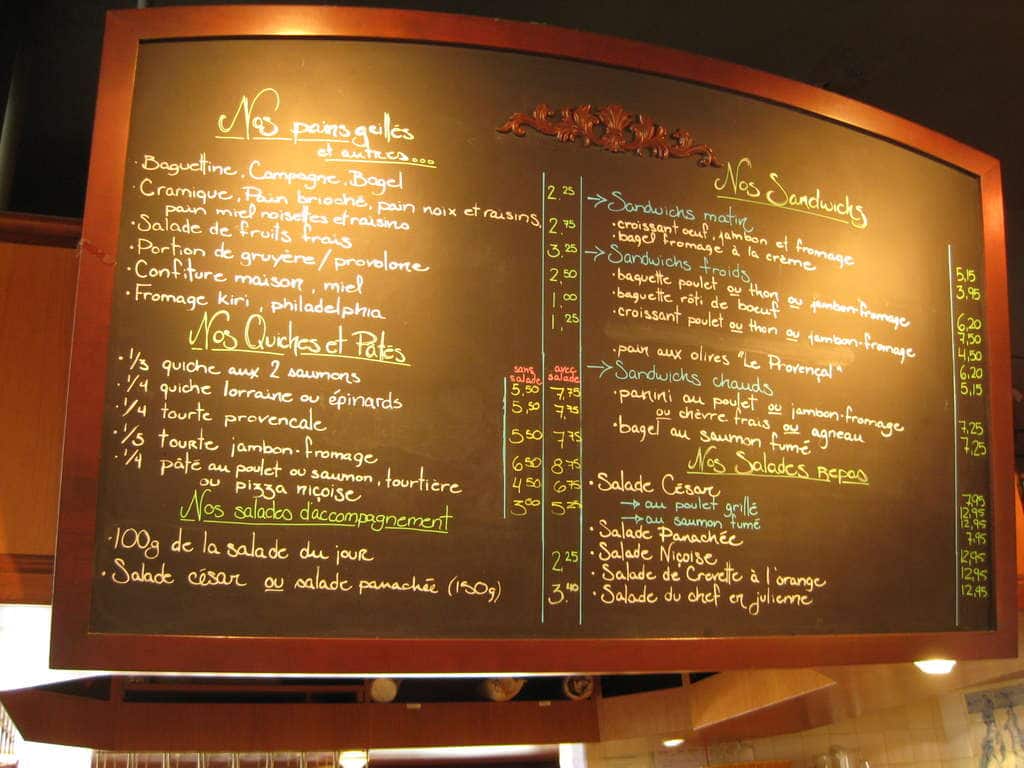 Nos pains grillés
et autres...
· Baguettine, Campagne, Bagel 2.25
· Cramique, Pain brioché, pain noix et raisins,
pain miel noisettes et raisins 2.75
· Salade de fruits frais 3.25
· Portion de gruyère/provolone 2.50
· Confiture maison, miel 1.00
· Fromage kiri, philadelphia 1.25
Nos Quiches et Pâtés
sans salade avec salade
· 1/3 quiche aux 2 saumons 5.50 7.75
· 1/4 quiche lorraine ou épinards 5.50 7.75
· 1/4 tourte provencale 5.50 7.75
· 1/3 tourte jambon-fromage 6.50 8.75
· 1/4 pâté au poulet ou saumon, tourtière 4.50 6.75
ou pizza niçoise 5.25
Nos salades d'accompagnement
· 100g de la salade du jour 2.25
· Salade césar ou salade panachée (150g) 3.40
Nos Sandwichs
→ Sandwichs matin
· croissant oeuf, jambon et fromage 5,15
· bagel fromage à la crème 3,95
→ Sandwichs froids
· baguette poulet ou thon ou jambon-fromage 6,20
· baguette rôti de boeuf 7,50
· croissant poulet ou thon ou jambon-fromage 4,50
6,20
· pain aux olives "Le Provençal" 5,15
→ Sandwichs chauds
· panini au poulet ou jambon-fromage
ou chèvre frais ou agneau 7,25
· bagel au saumon fumé 7,25
Nos Salades Repas
· Salade César 7,95
→ au poulet grillé 12,95
→ au saumon fumé 12,95
· Salade Panachée 7,95
· Salade Niçoise 12,95
· Salade de Crevette à l'orange 12,95
· Salade du chef en julienne 12,95